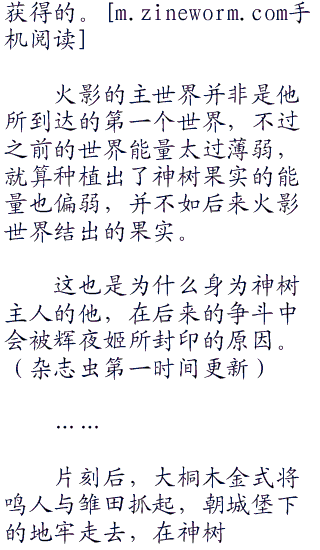 获得的。[m.zineworm.com手
机阅读]
火影的主世界并非是他
所到达的第一个世界，不过
之前的世界能量太过薄弱，
就算种植出了神树果实的能
量也偏弱，并不如后来火影
世界结出的果实。
这也是为什么身为神树
主人的他，在后来的争斗中
会被辉夜姬所封印的原因。
（杂志虫第一时间更新）
……
片刻后，大桐木金式将
鸣人与雏田抓起，朝城堡下
的地牢走去，在神树